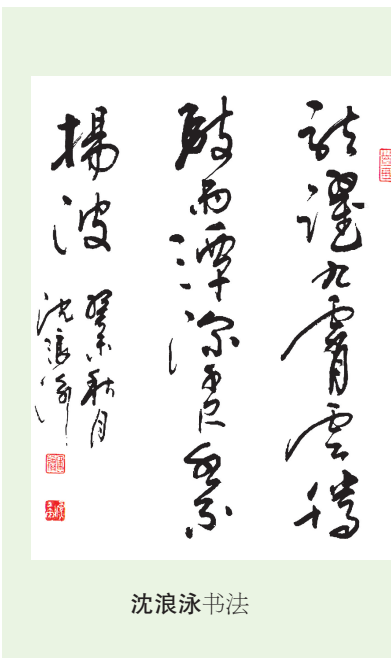 龍躍九霄云騰
致雨潭深千尺水不
揚波
癸未秋月
沈浪泳
沈浪泳书法